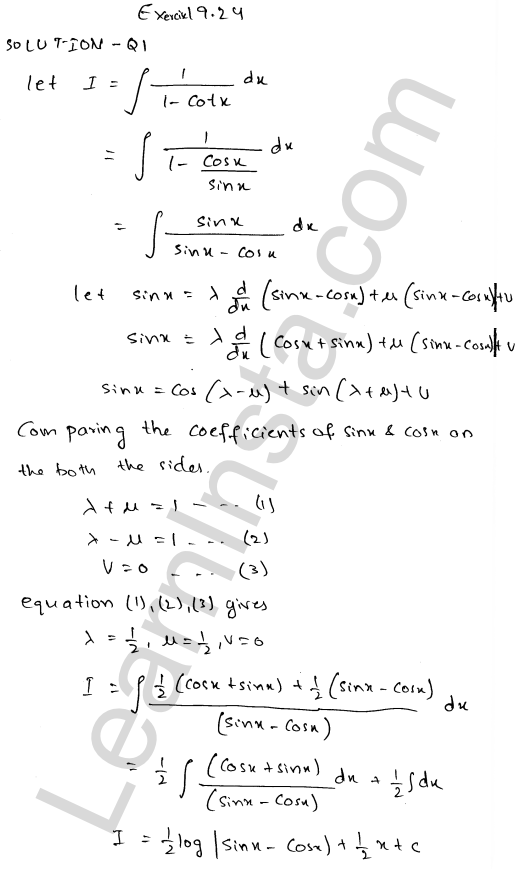 Exercise 19.24
SOLUTION - Q1
let I = ∫ 1/(1 - Cotx) dx
= ∫ 1/(1 - Cosx/Sinx) dx
= ∫ Sinx/(Sinx - Cosx) dx
let Sinx = λ d/dx (Sinx - Cosx) + μ (Sinx - Cosx) + ν
Sinx = λ d/dx (Cosx + Sinx) + μ (Sinx - Cosx) + ν
Sinx = Cos (λ - μ) + Sin (λ + μ) + ν
Comparing the coefficients of Sinx & Cosx on
the both the sides.
λ + μ = 1 - - - - (1)
λ - μ = 1 - - - - (2)
ν = 0 - - - - (3)
equation (1), (2), (3) gives
λ = 1/2, μ = 1/2, ν = 0
I = ∫ (1/2 (Cosx + Sinx) + 1/2 (Sinx - Cosx))/(Sinx - Cosx) dx
= 1/2 ∫ (Cosx + Sinx)/(Sinx - Cosx) dx + 1/2 ∫ dx
I = 1/2 log |Sinx - Cosx) + 1/2 x + c
LearnInsta.com